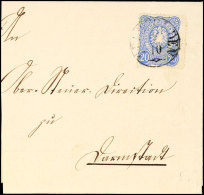 An
20
Ober-Steuer-Direction
zu
Darmstadt